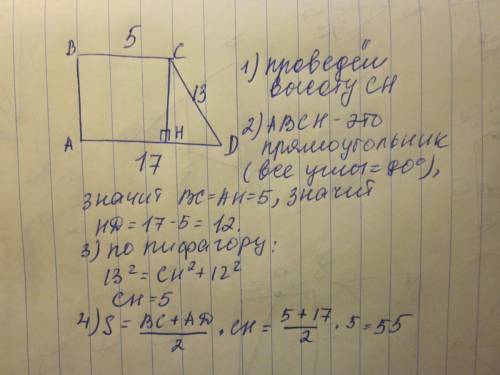 5
B C
13
A H D
17
1) проведём
высоту CH
2) ABCH - это
прямоугольник
(все углы = 90°),
значит BC = AH = 5, значит
HD = 17 - 5 = 12.
3) по пифагору:
13² = CH² + 12²
CH = 5
4) S = (BC + AD)/2 · CH = (5 + 17)/2 · 5 = 55